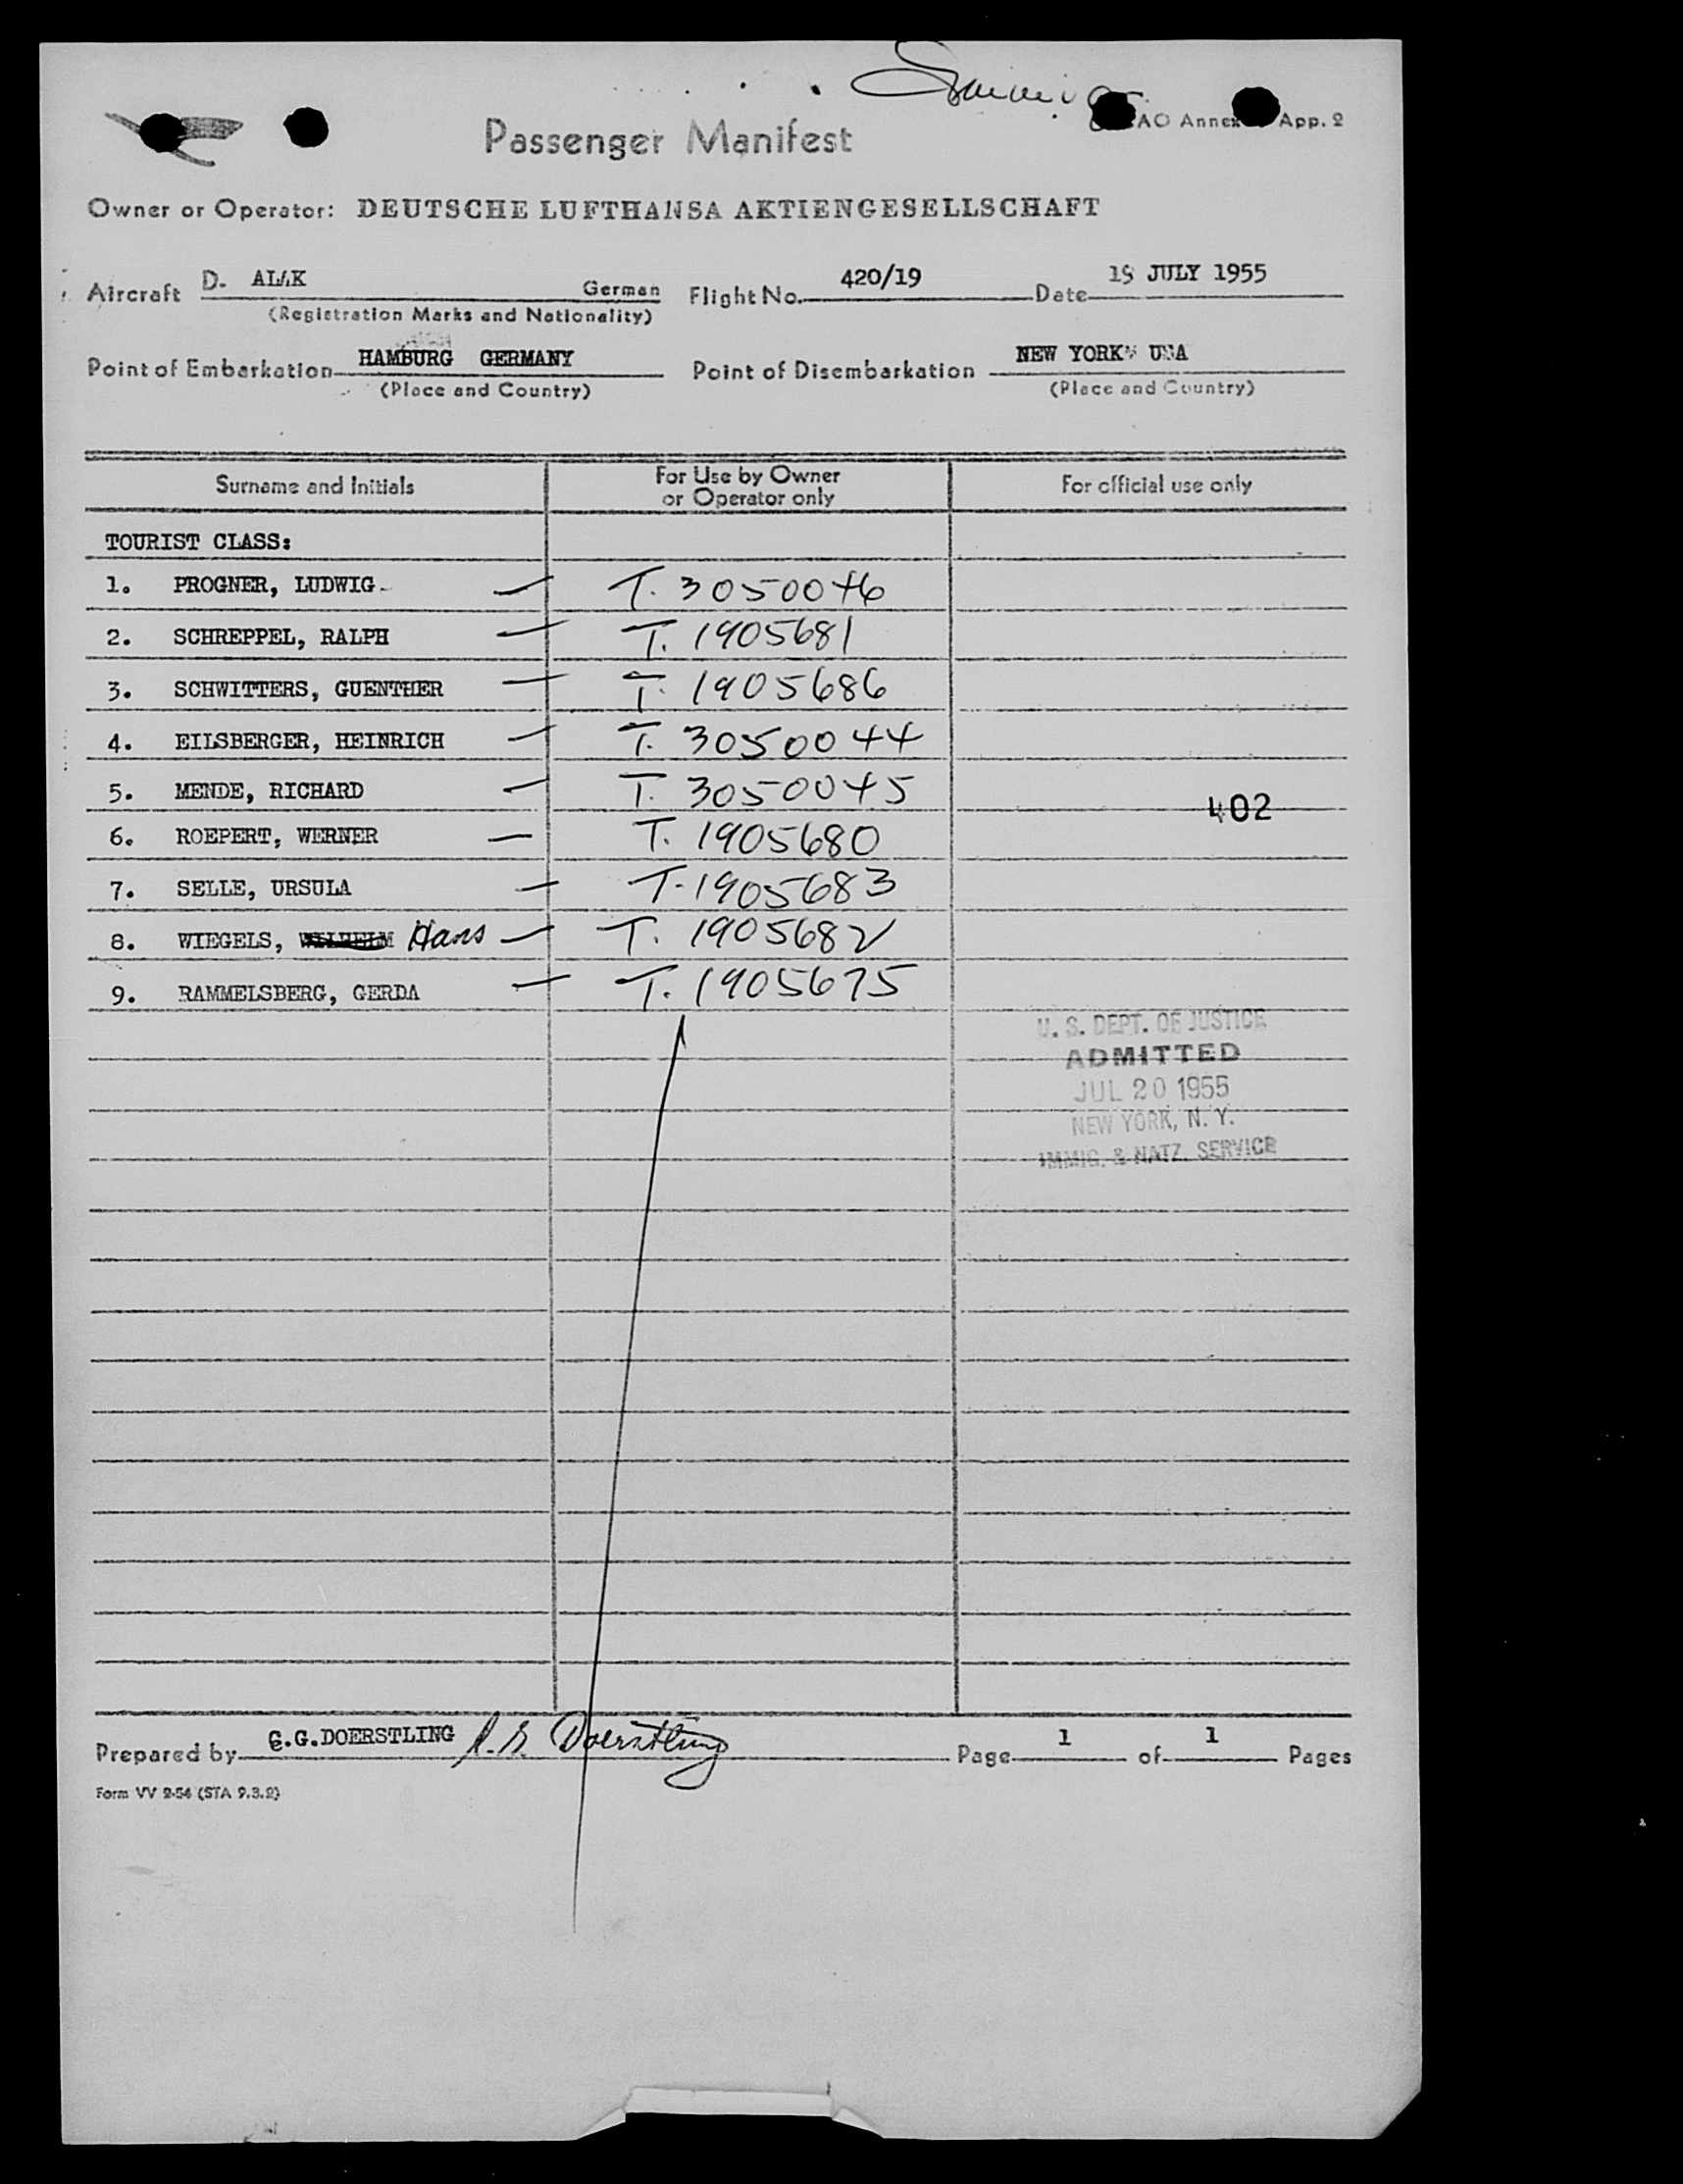 Passenger Manifest
AO Annex App. 2
Owner or Operator: DEUTSCHE LUFTHANSA AKTIENGESELLSCHAFT
Aircraft D. ALAK German Flight No. 420/19 Date 19 JULY 1955
(Registration Marks and Nationality)
Point of Embarkation HAMBURG GERMANY Point of Disembarkation NEW YORK USA
(Place and Country) (Place and Country)
Surname and Initials For Use by Owner or Operator only For official use only
TOURIST CLASS:
1. PROGNER, LUDWIG T. 3050046
2. SCHREPPEL, RALPH T. 1905681
3. SCHWITTERS, GUENTHER T. 1905686
4. EILSBERGER, HEINRICH T. 3050044
5. MENDE, RICHARD T. 3050045
402
6. ROEPERT, WERNER T. 1905680
7. SELLE, URSULA T-1905683
8. WIEGELS, WILHELM Hans T. 1905682
9. RAMMELSBERG, GERDA T. 1905675
U. S. DEPT. OF JUSTICE
ADMITTED
JUL 20 1955
NEW YORK, N. Y.
IMMIG. & NATZ. SERVICE
Prepared by G.G.DOERSTLING Doerstling Page 1 of 1 Pages
Form VV 2-54 (STA 9.3.2)